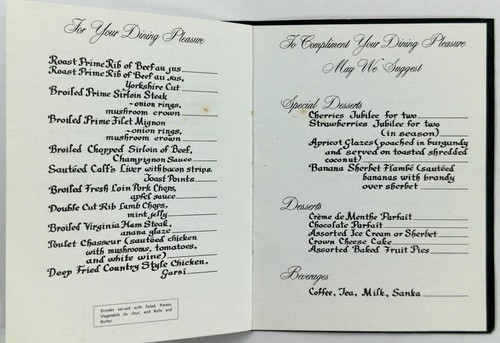 For Your Dining Pleasure
Roast Prime Rib of Beef au jus
Roast Prime Rib of Beef au jus,
Yorkshire Cut
Broiled Prime Sirloin Steak
~onion rings,
mushroom crown
Broiled Prime Filet Mignon
~onion rings,
mushroom crown
Broiled Chopped Sirloin of Beef,
Champignon Sauce
Sautéed Calf's Liver with bacon strips,
Toast Points
Broiled Fresh Loin Pork Chops,
apfel sauce
Double Cut Rib Lamb Chops,
mint jelly
Broiled Virginia Ham Steak,
anana glaze
Poulet Chasseur (sautéed chicken
with mushrooms, tomatoes,
and white wine)
Deep Fried Country Style Chicken,
Garni
Entrées served with Salad, Potato,
Vegetable du Jour, and Rolls and
Butter.
To Compliment Your Dining Pleasure
May We Suggest
Special Desserts
Cherries Jubilee for two
Strawberries Jubilee for two
(in season)
Apricot Glazes (poached in burgundy
and served on toasted shredded
coconut)
Banana Sherbet Flambé (sautéed
bananas with brandy
over sherbet
Desserts
Crème de Menthe Parfait
Chocolate Parfait
Assorted Ice Cream or Sherbet
Crown Cheese Cake
Assorted Baked Fruit Pies
Beverages
Coffee, Tea, Milk, Sanka